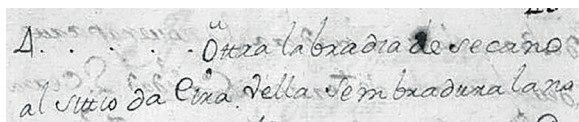 4. . . . . . Ottra labradia de secano
al sittio da Eira. della sembradura lano